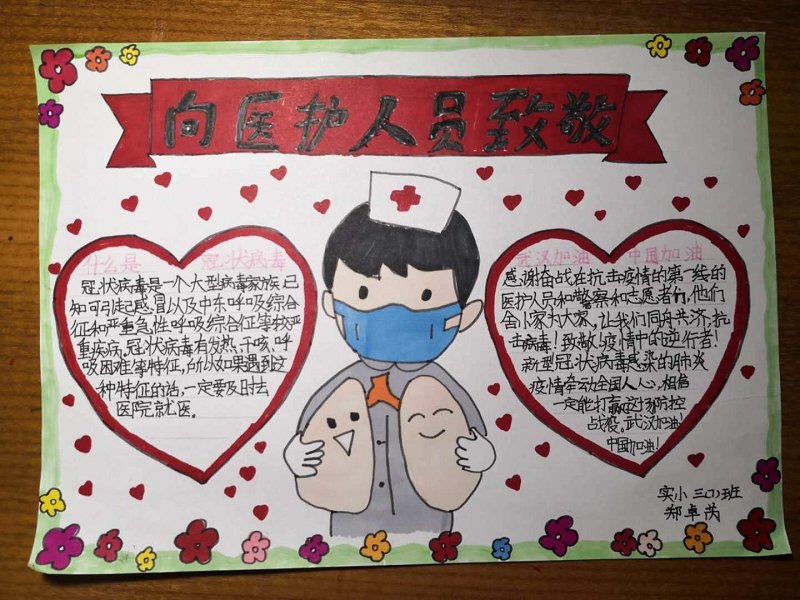 向医护人员致敬
什么是 冠状病毒
冠状病毒是一个大型病毒家族,已
知可引起感冒以及中东呼吸综合
征和严重急性呼吸综合征等较严
重疾病。冠状病毒有发热、干咳、呼
吸困难等特征,所以如果遇到这
种特征的话,一定要及时去
医院就医。
武汉加油 中国加油
感谢奋战在抗击疫情的第一线的
医护人员和警察和志愿者们,他们
舍小家为大家,让我们同舟共济,抗
击病毒!致敬!疫情中的逆行者!
新型冠状病毒感染的肺炎
疫情牵动全国人心,相信
一定能打赢这场防控
战役。武汉加油!
中国加油!
实小 三(1)班
郑卓芮